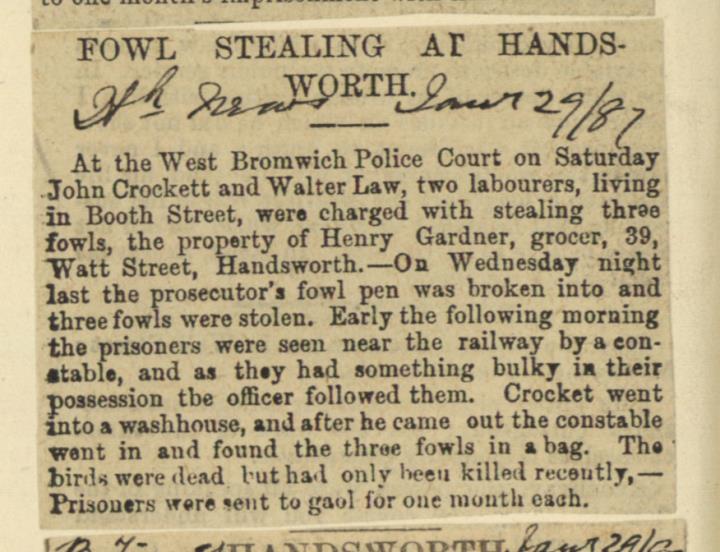 to one month's imprisonment with
FOWL STEALING AT HANDS-
WORTH.
Hh News Janr 29/87
At the West Bromwich Police Court on Saturday
John Crockett and Walter Law, two labourers, living
in Booth Street, were charged with stealing three
fowls, the property of Henry Gardner, grocer, 39,
Watt Street, Handsworth.—On Wednesday night
last the prosecutor's fowl pen was broken into and
three fowls were stolen. Early the following morning
the prisoners were seen near the railway by a con-
stable, and as they had something bulky in their
possession tbe officer followed them. Crocket went
into a washhouse, and after he came out the constable
went in and found the three fowls in a bag. The
birds were dead but had only been killed recently,—
Prisoners were sent to gaol for one month each.
HANDSWORTH Janr 29/